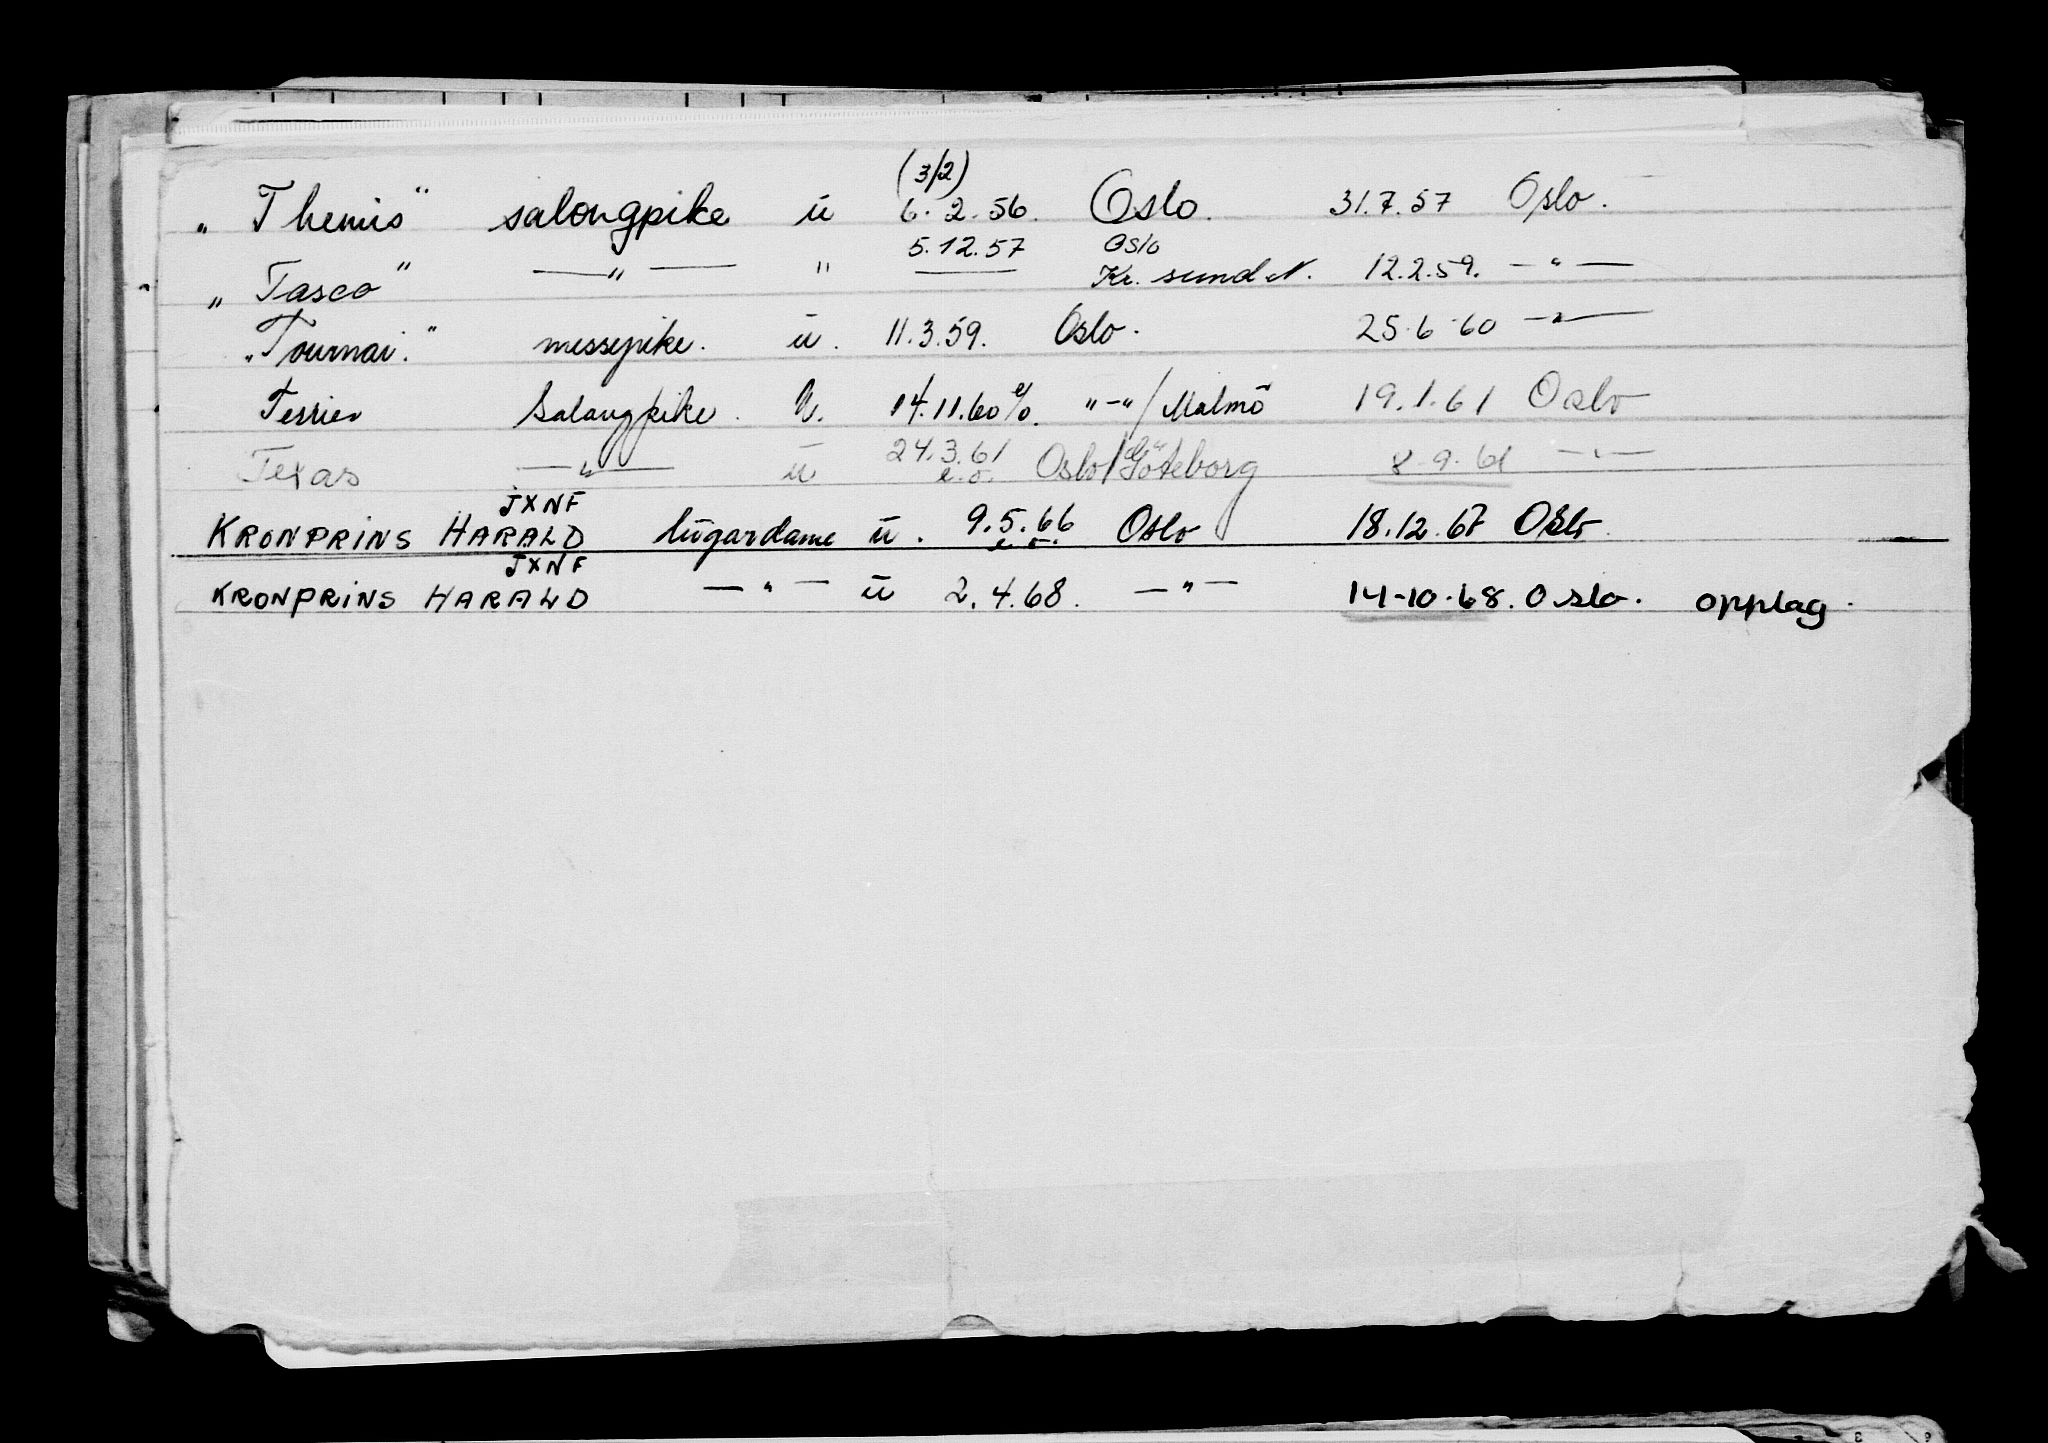 (3/2)
„ Themis“ salongpike ū 6. 2. 56. Oslo. 31.7.57 Oslo.
5.12.57 Oslo
„ Tasco“ —"— " Kr. sund N. 12.2.59. —"—
„Tournai.“ messepike. ū. 11.3.59. Oslo. 25.6.60 —"—
Terrier Salongpike. U. 14.11.60 e/o. "-"/Malmö 19.1.61 Oslo
Texas —"— ū 24.3.61 e.o. Oslo/Göteborg 8.9.61 —"—
JXNF
KRONPRINS HARALD lūgardame ū. 9.5.66 e.o. Oslo 18.12.67 Oslo.
JXNF
KRONPRINS HARALD —"— ū 2.4.68. —"— 14-10-68. Oslo. opplag.